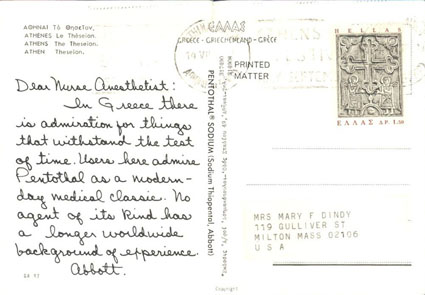 ΑΘΗΝΑΙ Τὸ Θησεῖον,
ATHENES Le Théseion.
ATHENS The Theseion.
ATHEN Theseion.
Dear Nurse Anesthetist:
In Greece there
is admiration for things
that withstand the test
of time. Users here admire
Pentothal as a modern-
day medical classic. No
agent of its kind has
a longer worldwide
background of experience.
Abbott.
PENTOTHAL® SODIUM (Sodium Thiopental, Abbott)
ΕΛΛΑΣ
GREECE - GRIECHENLAND - GRÈCE
PRINTED
MATTER
HELLAS
ΕΛΛΑΣ ΔΡ. 1.50
MRS MARY F DINDY
119 GULLIVER ST
MILTON MASS 02106
U S A
Copyright